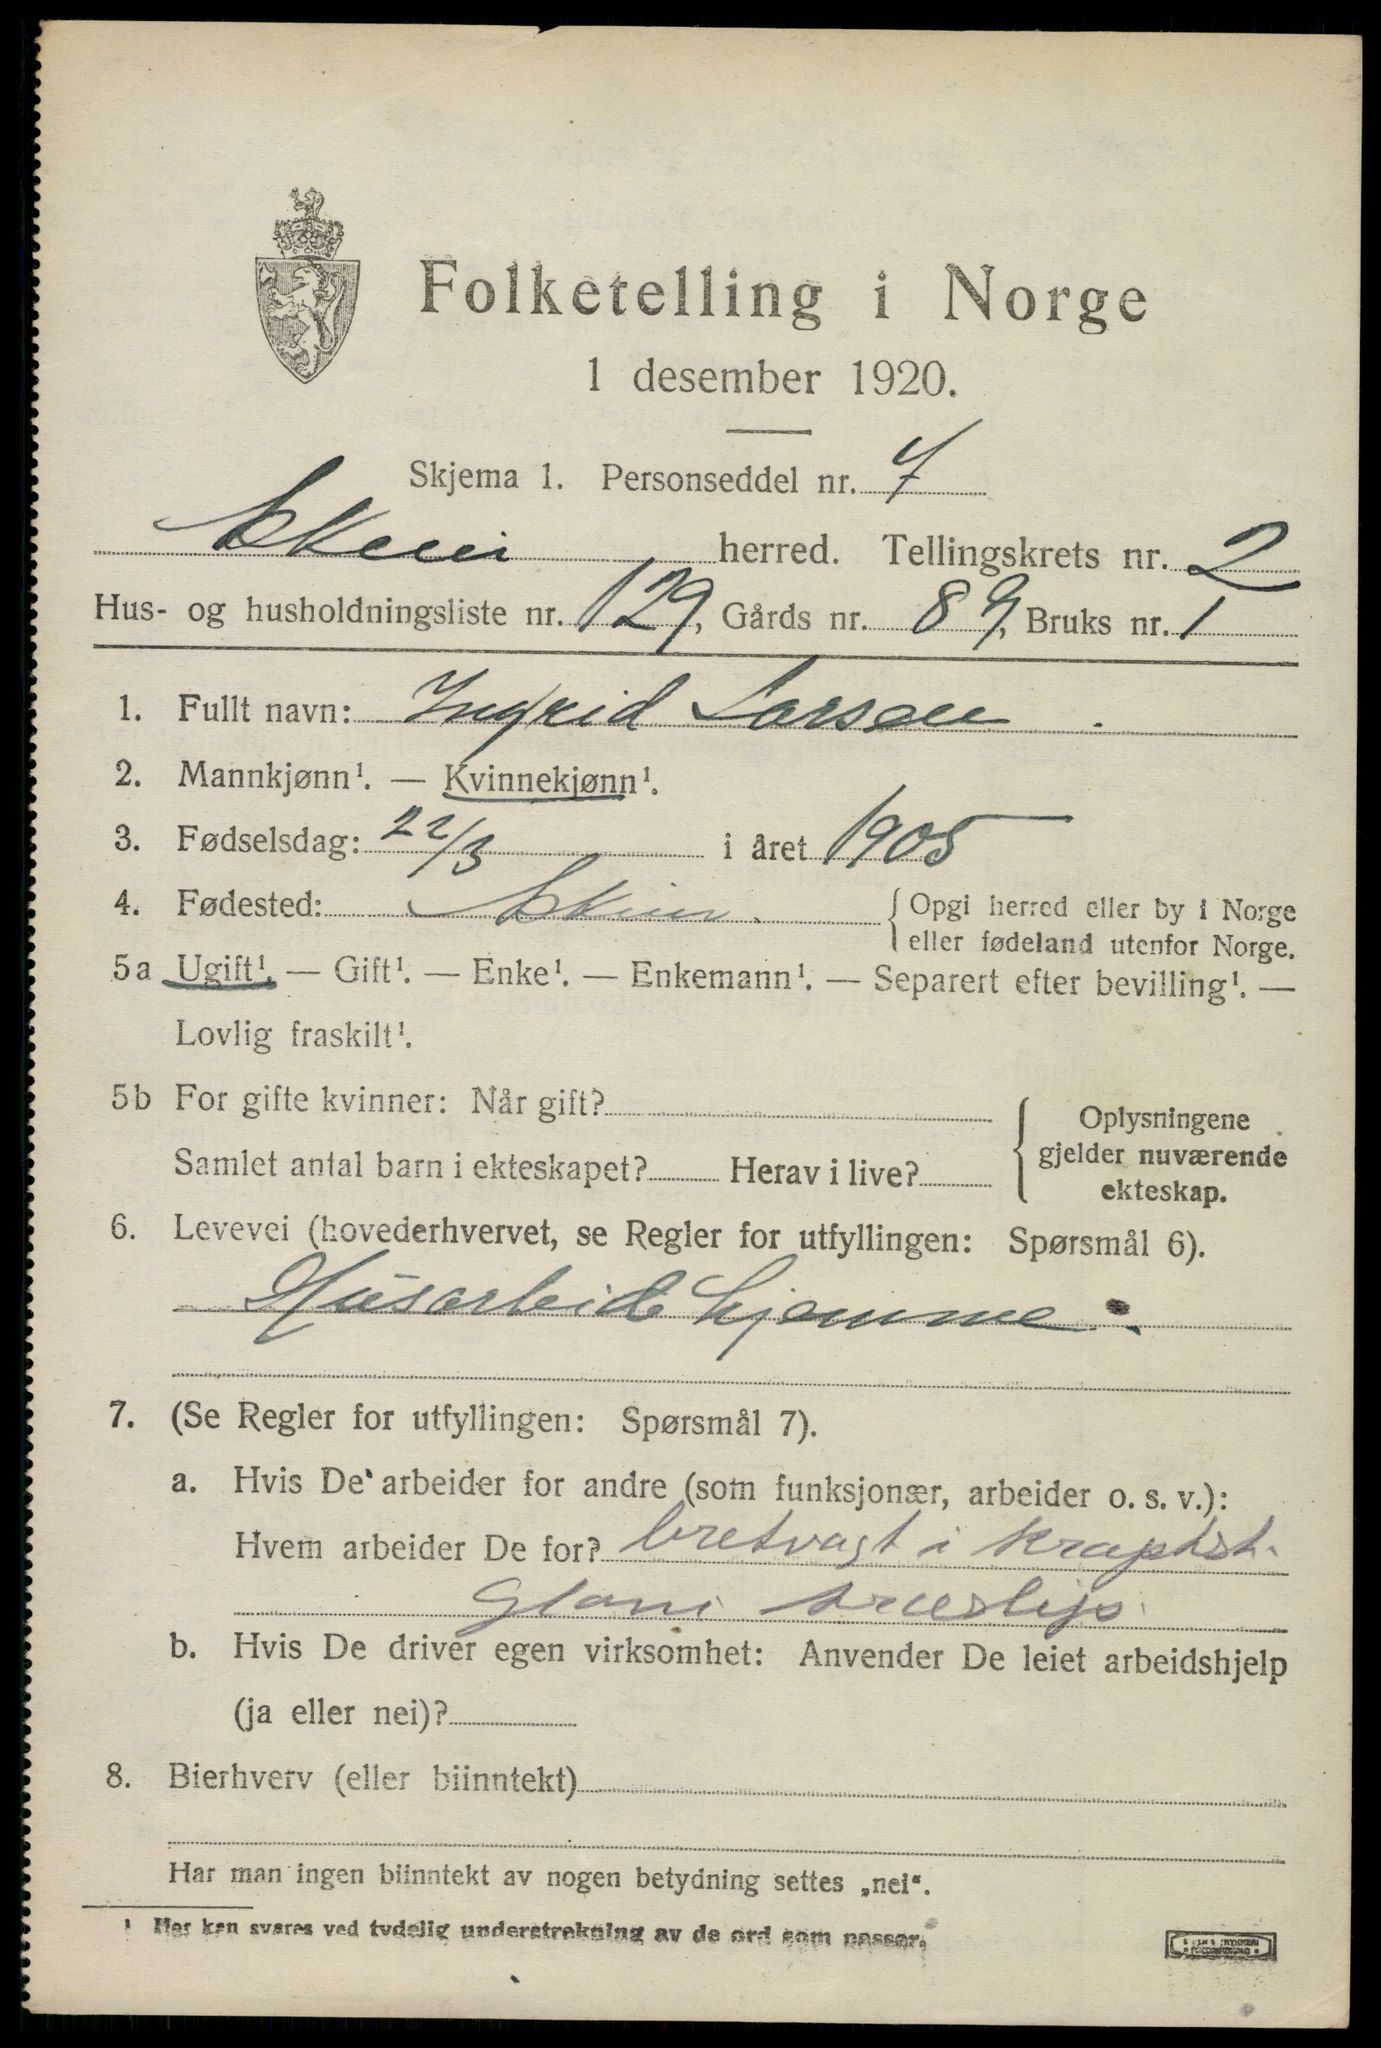 Folketelling i Norge
1 desember 1920.
Skjema 1. Personseddel nr. 7
Askim herred. Tellingskrets nr. 2
Hus- og husholdningsliste nr. 129, Gårds nr. 89, Bruks nr. 1
1. Fullt navn: Ingrid Larsen
2. Mannkjønn¹. — Kvinnekjønn¹.
3. Fødselsdag: 22/3 i året 1905
4. Fødested: Askim. { Opgi herred eller by i Norge
eller fødeland utenfor Norge.
5a Ugift¹. — Gift¹. — Enke¹. — Enkemann¹. — Separert efter bevilling¹. —
Lovlig fraskilt¹.
5b For gifte kvinner: Når gift?
Samlet antal barn i ekteskapet? Herav i live?
{ Oplysningene
gjelder nuværende
ekteskap.
6. Levevei (hovederhvervet, se Regler for utfyllingen: Spørsmål 6).
Husarbeide hjemme.
7. (Se Regler for utfyllingen: Spørsmål 7).
a. Hvis De arbeider for andre (som funksjonær, arbeider o. s. v.):
Hvem arbeider De for? i kraftst.
b. Hvis De driver egen virksomhet: Anvender De leiet arbeidshjelp
(ja eller nei)?
8. Bierhverv (eller biinntekt)
Har man ingen biinntekt av nogen betydning settes „nei“.
¹ Her kan svares ved tydelig understrekning av de ord som passer.